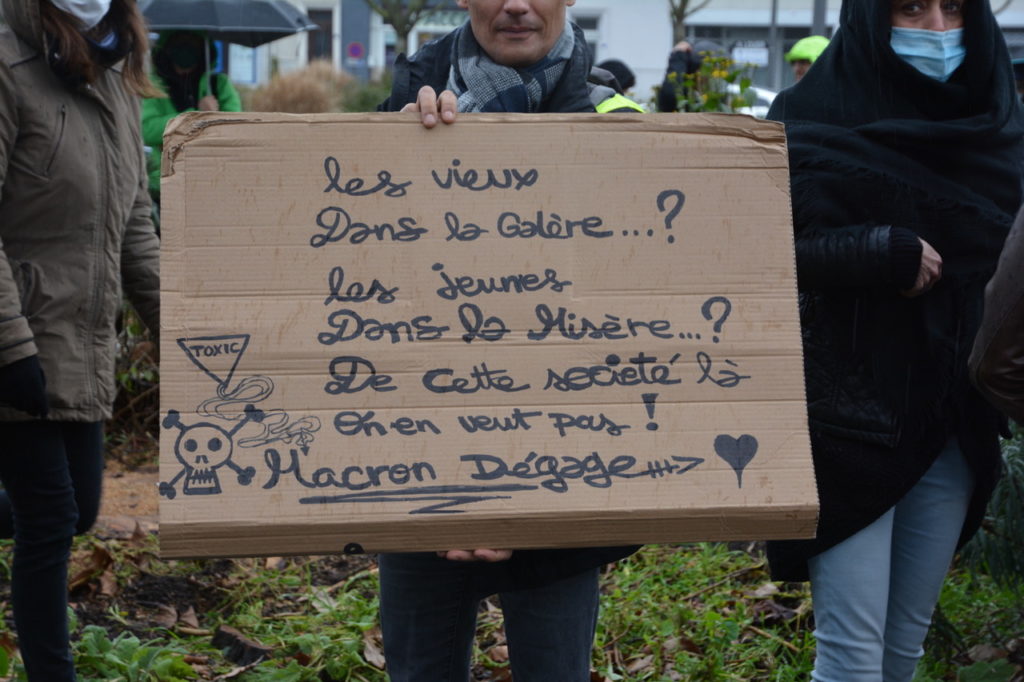 les vieux
Dans la Galère...?
les jeunes
Dans la Misère...?
De cette societé là
On en veut pas !
Macron Dégage
TOXIC